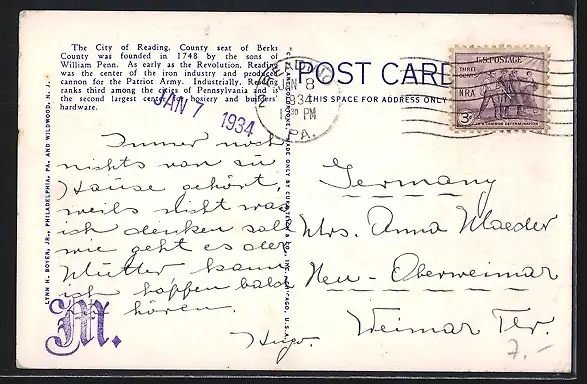 The City of Reading, County seat of Berks
County was founded in 1748 by the sons of
William Penn. As early as the Revolution, Reading
was the center of the iron industry and produced
cannon for the Patriot Army. Industrially, Reading
ranks third among the cities of Pennsylvania and is
the second largest center of hosiery and builders'
hardware.
JAN 7 1934
Immer noch
nichts von zu
Hause gehört,
weils nicht was
ich denken soll
wie geht es der
Mutter kann
ich hoffen bald
zu hören.
Hugo.
M.
LYNN H. BOYER, JR., PHILADELPHIA, PA. AND WILDWOOD, N. J.
POST CARD
THIS SPACE FOR ADDRESS ONLY
READING
JAN 8
1934
12 30 PM
PA.
U.S. POSTAGE
THREE
CENTS
NRA
3¢
IN A COMMON DETERMINATION
Germany
Mrs. Anna Maeder
Neu - Oberweimar
Weimar
7.-